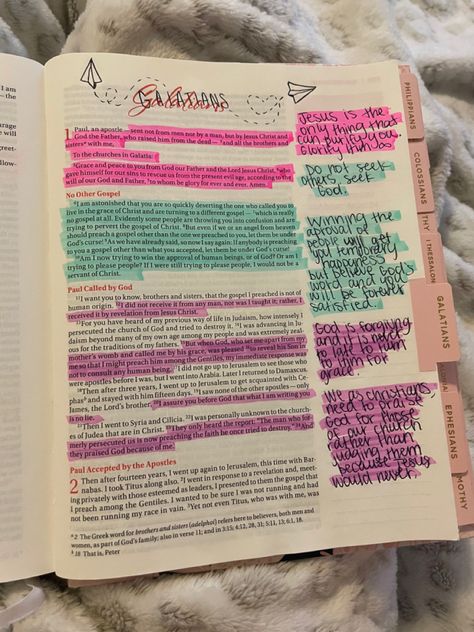 I am
— the
urage
greet-
llow-
GALATIANS
Galatians
1 Paul, an apostle — sent not from men nor by a man, but by Jesus Christ and
God the Father, who raised him from the dead — ² and all the brothers and
sisters ᵃ with me,
To the churches in Galatia:
³ Grace and peace to you from God our Father and the Lord Jesus Christ, ⁴ who
gave himself for our sins to rescue us from the present evil age, according to the
will of our God and Father, ⁵ to whom be glory for ever and ever. Amen.
No Other Gospel
⁶ I am astonished that you are so quickly deserting the one who called you to
live in the grace of Christ and are turning to a different gospel — ⁷ which is really
no gospel at all. Evidently some people are throwing you into confusion and are
trying to pervert the gospel of Christ. ⁸ But even if we or an angel from heaven
should preach a gospel other than the one we preached to you, let them be under
God's curse! ⁹ As we have already said, so now I say again: If anybody is preaching
to you a gospel other than what you accepted, let them be under God's curse!
¹⁰ Am I now trying to win the approval of human beings, or of God? Or am I
trying to please people? If I were still trying to please people, I would not be a
servant of Christ.
Paul Called by God
¹¹ I want you to know, brothers and sisters, that the gospel I preached is not of
human origin. ¹² I did not receive it from any man, nor was I taught it; rather, I
received it by revelation from Jesus Christ.
¹³ For you have heard of my previous way of life in Judaism, how intensely I
persecuted the church of God and tried to destroy it. ¹⁴ I was advancing in Ju-
daism beyond many of my own age among my people and was extremely zeal-
ous for the traditions of my fathers. ¹⁵ But when God, who set me apart from my
mother's womb and called me by his grace, was pleased ¹⁶ to reveal his Son in
me so that I might preach him among the Gentiles, my immediate response was
not to consult any human being. ¹⁷ I did not go up to Jerusalem to see those who
were apostles before I was, but I went into Arabia. Later I returned to Damascus.
¹⁸ Then after three years, I went up to Jerusalem to get acquainted with Ce-
phas ᵇ and stayed with him fifteen days. ¹⁹ I saw none of the other apostles — only
James, the Lord's brother. ²⁰ I assure you before God that what I am writing you
is no lie.
²¹ Then I went to Syria and Cilicia. ²² I was personally unknown to the church-
es of Judea that are in Christ. ²³ They only heard the report: "The man who for-
merly persecuted us is now preaching the faith he once tried to destroy." ²⁴ And
they praised God because of me.
Paul Accepted by the Apostles
2 Then after fourteen years, I went up again to Jerusalem, this time with Bar-
nabas. I took Titus along also. ² I went in response to a revelation and, meet-
ing privately with those esteemed as leaders, I presented to them the gospel that
I preach among the Gentiles. I wanted to be sure I was not running and had
not been running my race in vain. ³ Yet not even Titus, who was with me, was
ᵃ 2 The Greek word for brothers and sisters (adelphoi) refers here to believers, both men and
women, as part of God's family; also in verse 11; and in 3:15; 4:12, 28, 31; 5:11, 13; 6:1, 18.
ᵇ 18 That is, Peter
Jesus is the
only thing that
can purify you.
Glorify him
Do not seek
others, seek
God.
Winning the
aproval of
people will get
you temporary
happiness
but believe God's
word and you
will be forever
satisfied.
God is forgiving
and it is never
to late to turn
to him for
grace.
We as christians,
need to praise
God for those
of our church
rather than
judging them
because Jesus
would never.
PHILIPPIANS
COLOSSIANS
THY
1 THESSALON
GALATIANS
EPHESIANS
MOTHY